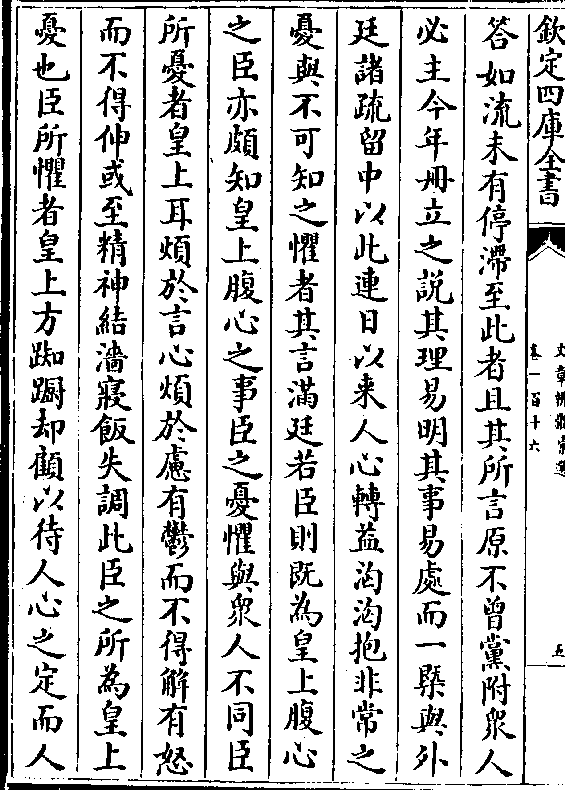 欽定四庫全書
文章辨體彚選
卷一百十六
五
答如流未有停滯至此者且其所言原不曾黨附衆人
必主今年冊立之說其理易明其事易處而一槩與外
廷諸疏留中以此連日以來人心轉益洶洶抱非常之
憂與不可知之懼者其言滿廷若臣則既為皇上腹心
之臣亦頗知皇上腹心之事臣之憂懼與衆人不同臣
所憂者皇上耳煩於言心煩於慮有鬱而不得解有怒
而不得伸或至精神結濇寢飯失調此臣之所為皇上
憂也臣所懼者皇上方踟蹰却顧以待人心之定而人